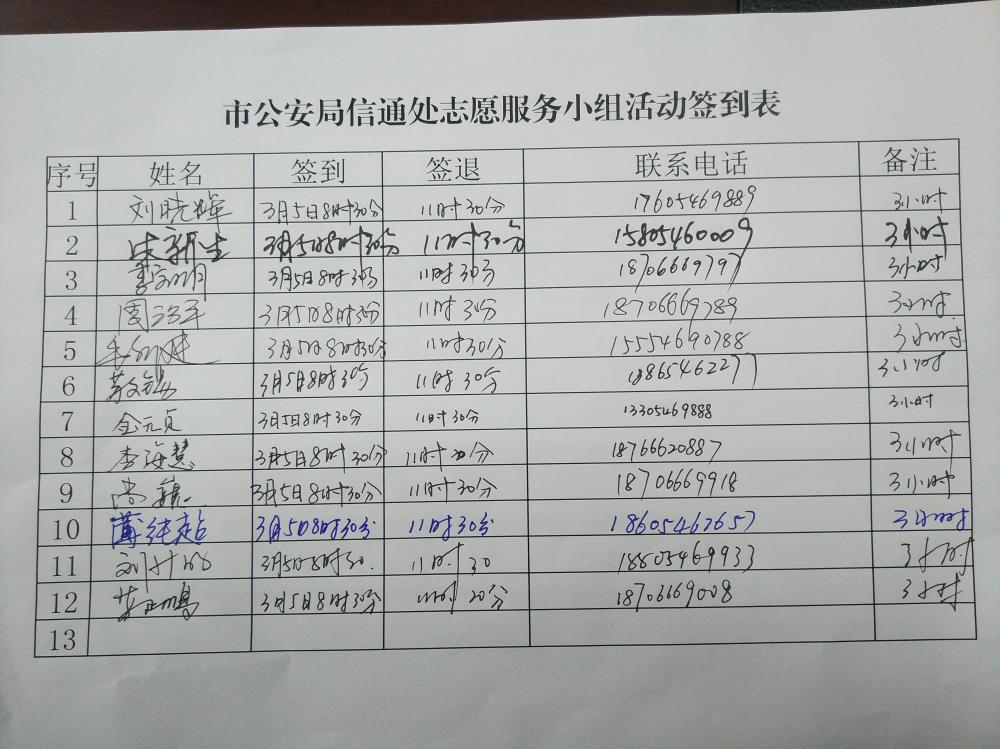 市公安局信通处志愿服务小组活动签到表
序号 姓名 签到 签退 联系电话 备注
1 刘晓辉 3月5日8时30分 11时30分 17605469889 3小时
2 宋新生 3月5日8时30分 11时30分 15805460009 3小时
3 3月5日8时30分 11时30分 18706669797 3小时
4 周 3月5日8时30分 11时30分 18706669789 3小时
5 3月5日8时30分 11时30分 15554690788 3小时
6 3月5日8时30分 11时30分 1865462277 3小时
7 金元贞 3月5日8时30分 11时30分 13305469888 3小时
8 李海慧 3月5日8时30分 11时30分 18766620887 3小时
9 尚 3月5日8时30分 11时30分 18706669918 3小时
10 薄纯 3月5日8时30分 11时30分 18605462657 3小时
11 刘 3月5日8时30. 11时30 18805469933 3小时
12 3月5日8时30分 11时20分 1870669008 3小时
13